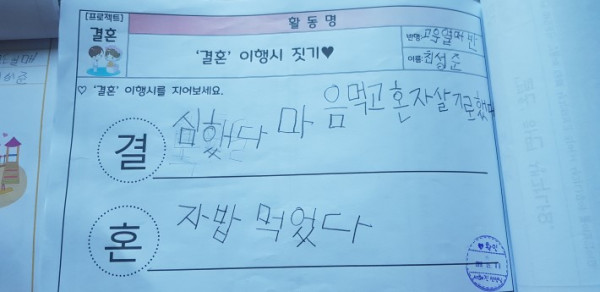 [프로젝트]
결혼
활동명
'결혼' 이행시 짓기♥
반명:
이름:최성준
♡ '결혼' 이행시를 지어보세요.
결
심했다 마음먹고 혼자살기로했다
혼
자밥 먹었다